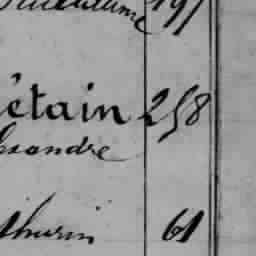 197
étain 258
exandre
thurin 61